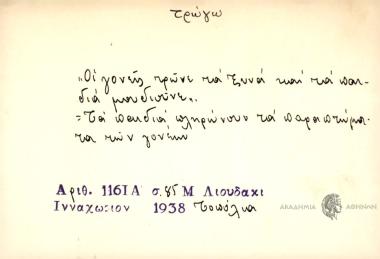 τρώγω
„Οἱ γονεῖς τρῶνε τὰ ξυνὰ καὶ τὰ παι-
διά μουδιοῦνε„.
= Τὰ παιδιά πληρώνουν τὰ παραπτώμα-
τα τῶν γονέων
Αριθ. 1161Α σ. 85 Μ Λιουδακι
Ινναχωριον 1938 Τοπόλια
ΑΚΑΔΗΜΙΑ ΑΘΗΝΩΝ